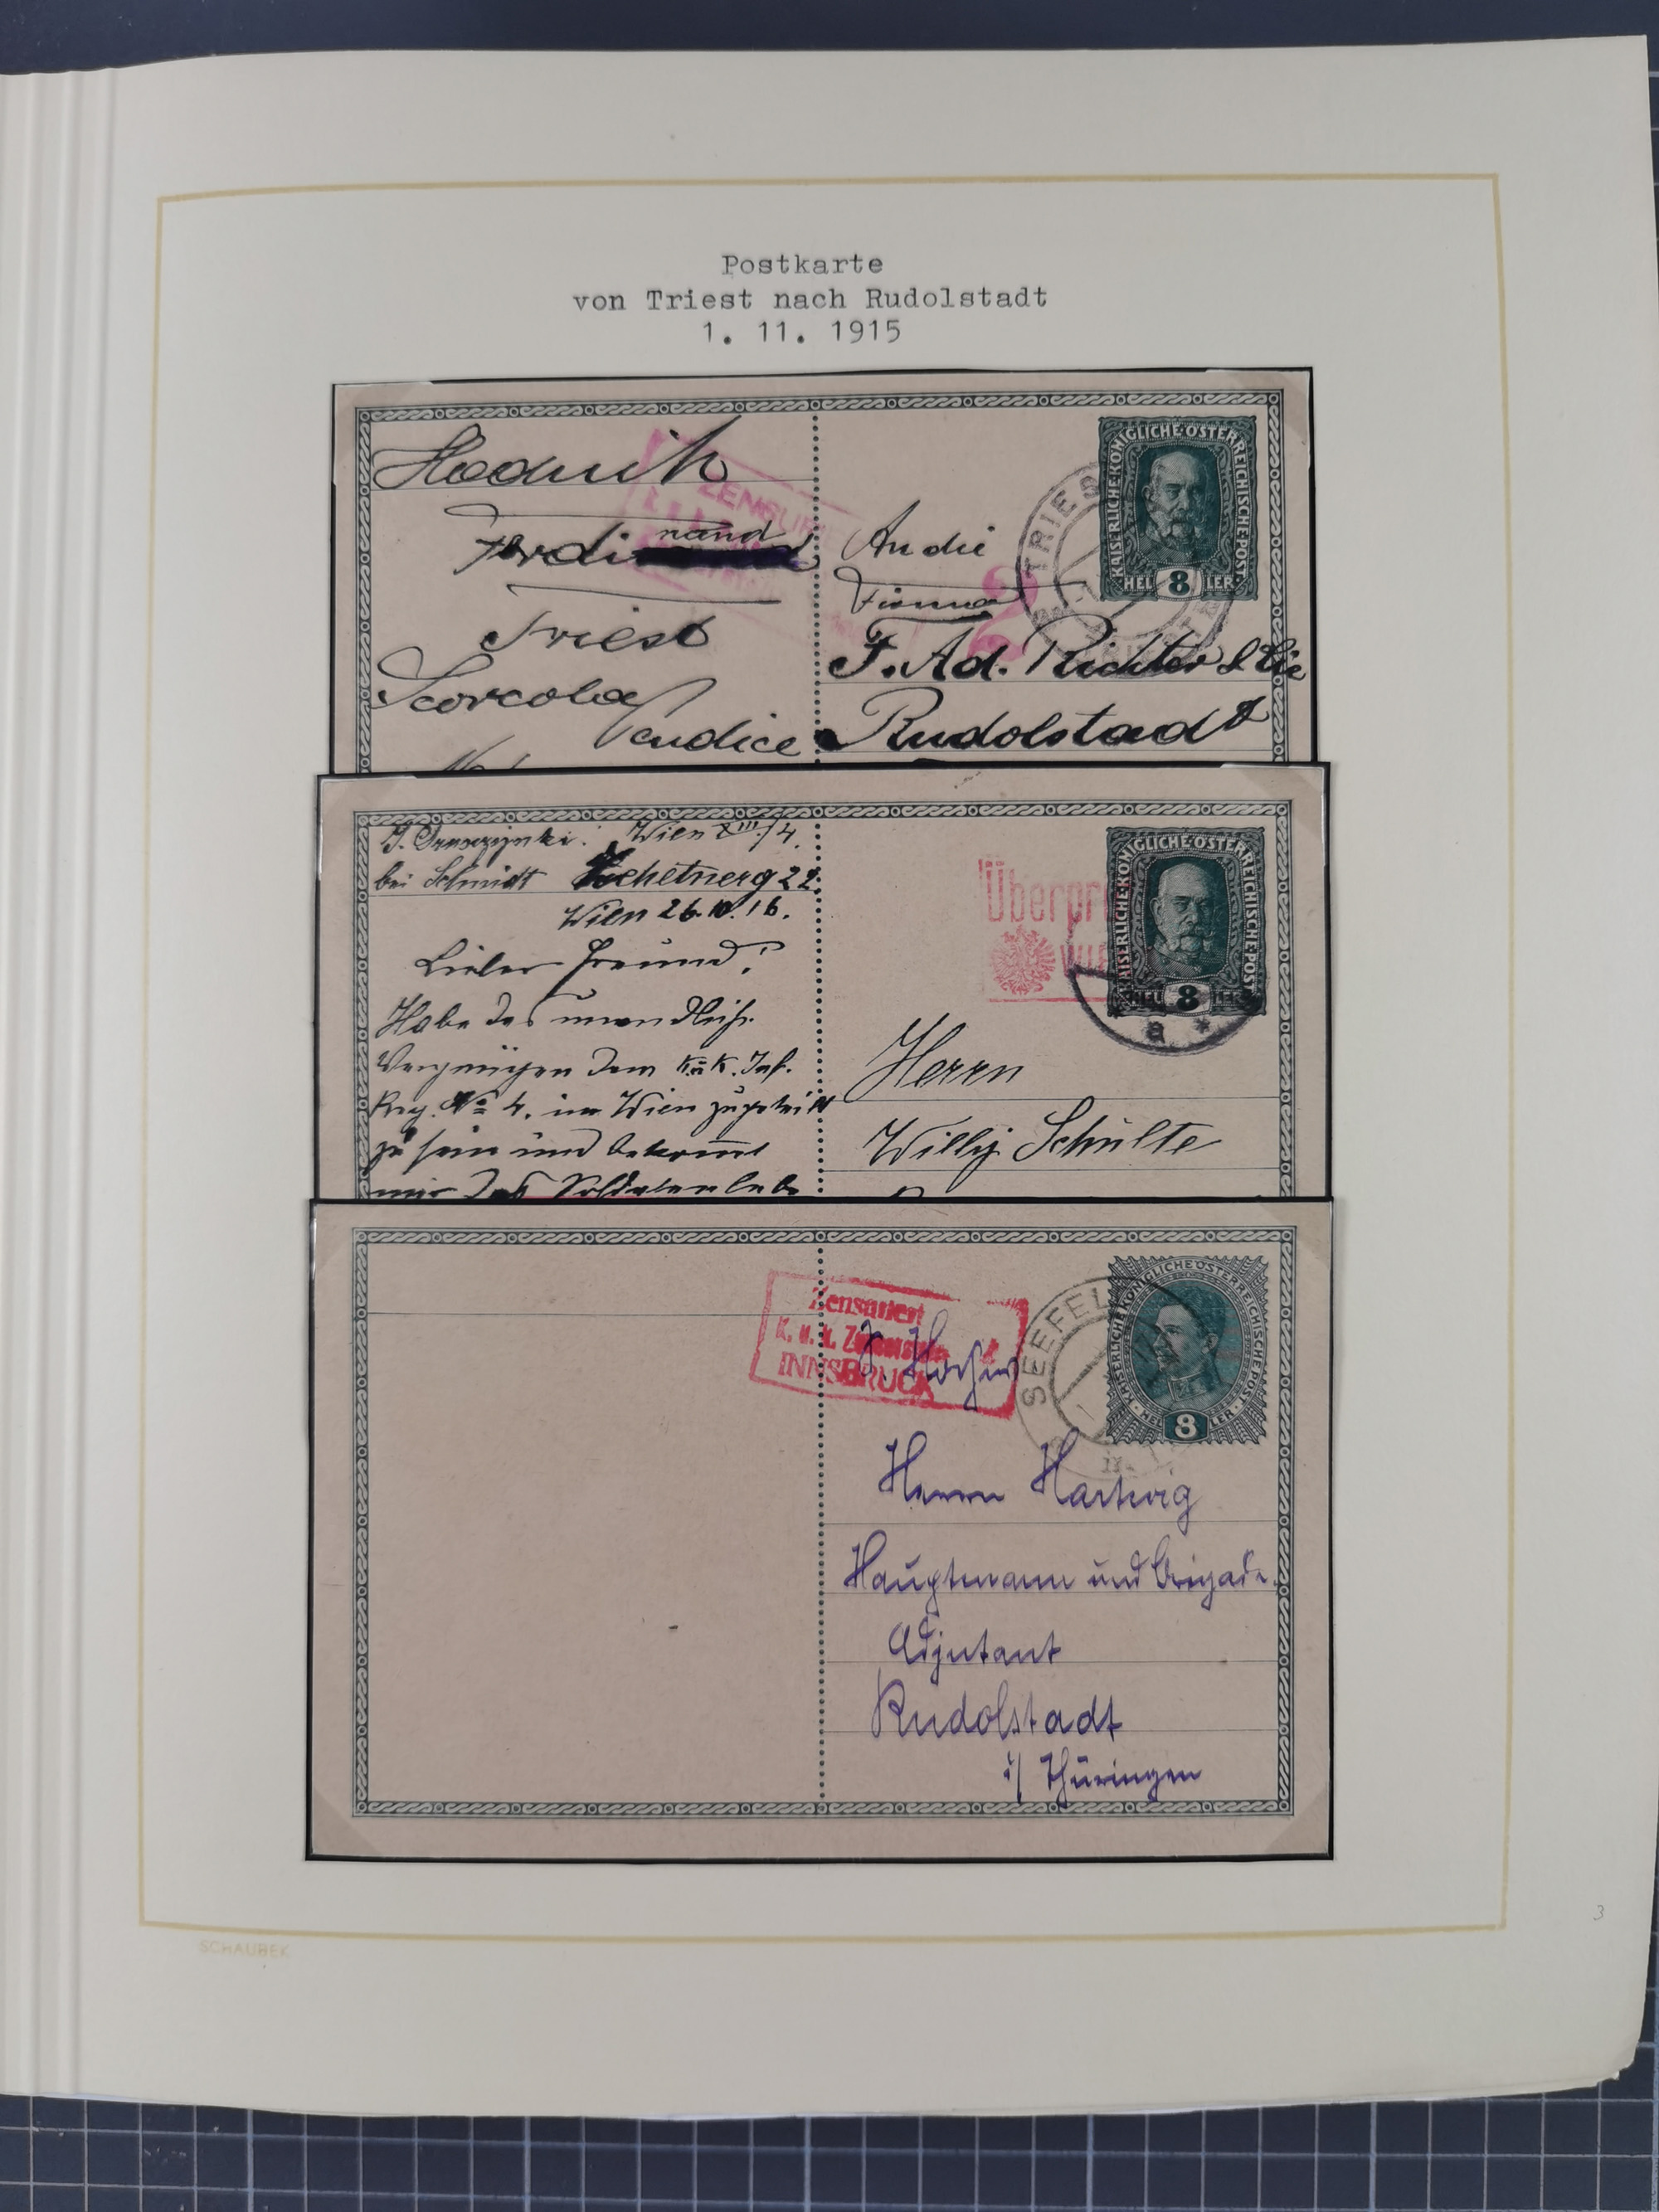 Postkarte
von Triest nach Rudolstadt
1. 11. 1915
Hodnik
Ferdinand
Triest
Scorcola
ZENSUR
TRIES
KAISERLICHE·KÖNIGLICHE·ÖSTERREICHISCHE·POST
HEL 8 LER
2
An die
Firma
F. Ad. Richter & Cie
Rudolstadt
Wien XIII/4.
bei Schmidt 22.
Wien 26.10.16.
Lieber Freund!
Habe das unendliche
Vergnügen dem K.u.K. Inf.
Reg. No 4. in Wien zugeteilt
zu sein und bekommt
mir das Soldatenlebe
Überpr
wu
KAISERLICHE·KÖNIGLICHE·ÖSTERREICHISCHE·POST
HEL 8 LER
a *
Herrn
Willy Schulte
Zensuriert
K. u. k. Zensurstelle
INNSBRUCK
SEEFEL
KAISERLICHE KÖNIGLICHE ÖSTERREICHISCHE POST
HEL 8 LER
Herrn Hartwig
Hauptmann und Brigade.
Adjutant
Rudolstadt
i/ Thüringen
3
SCHAUBEK